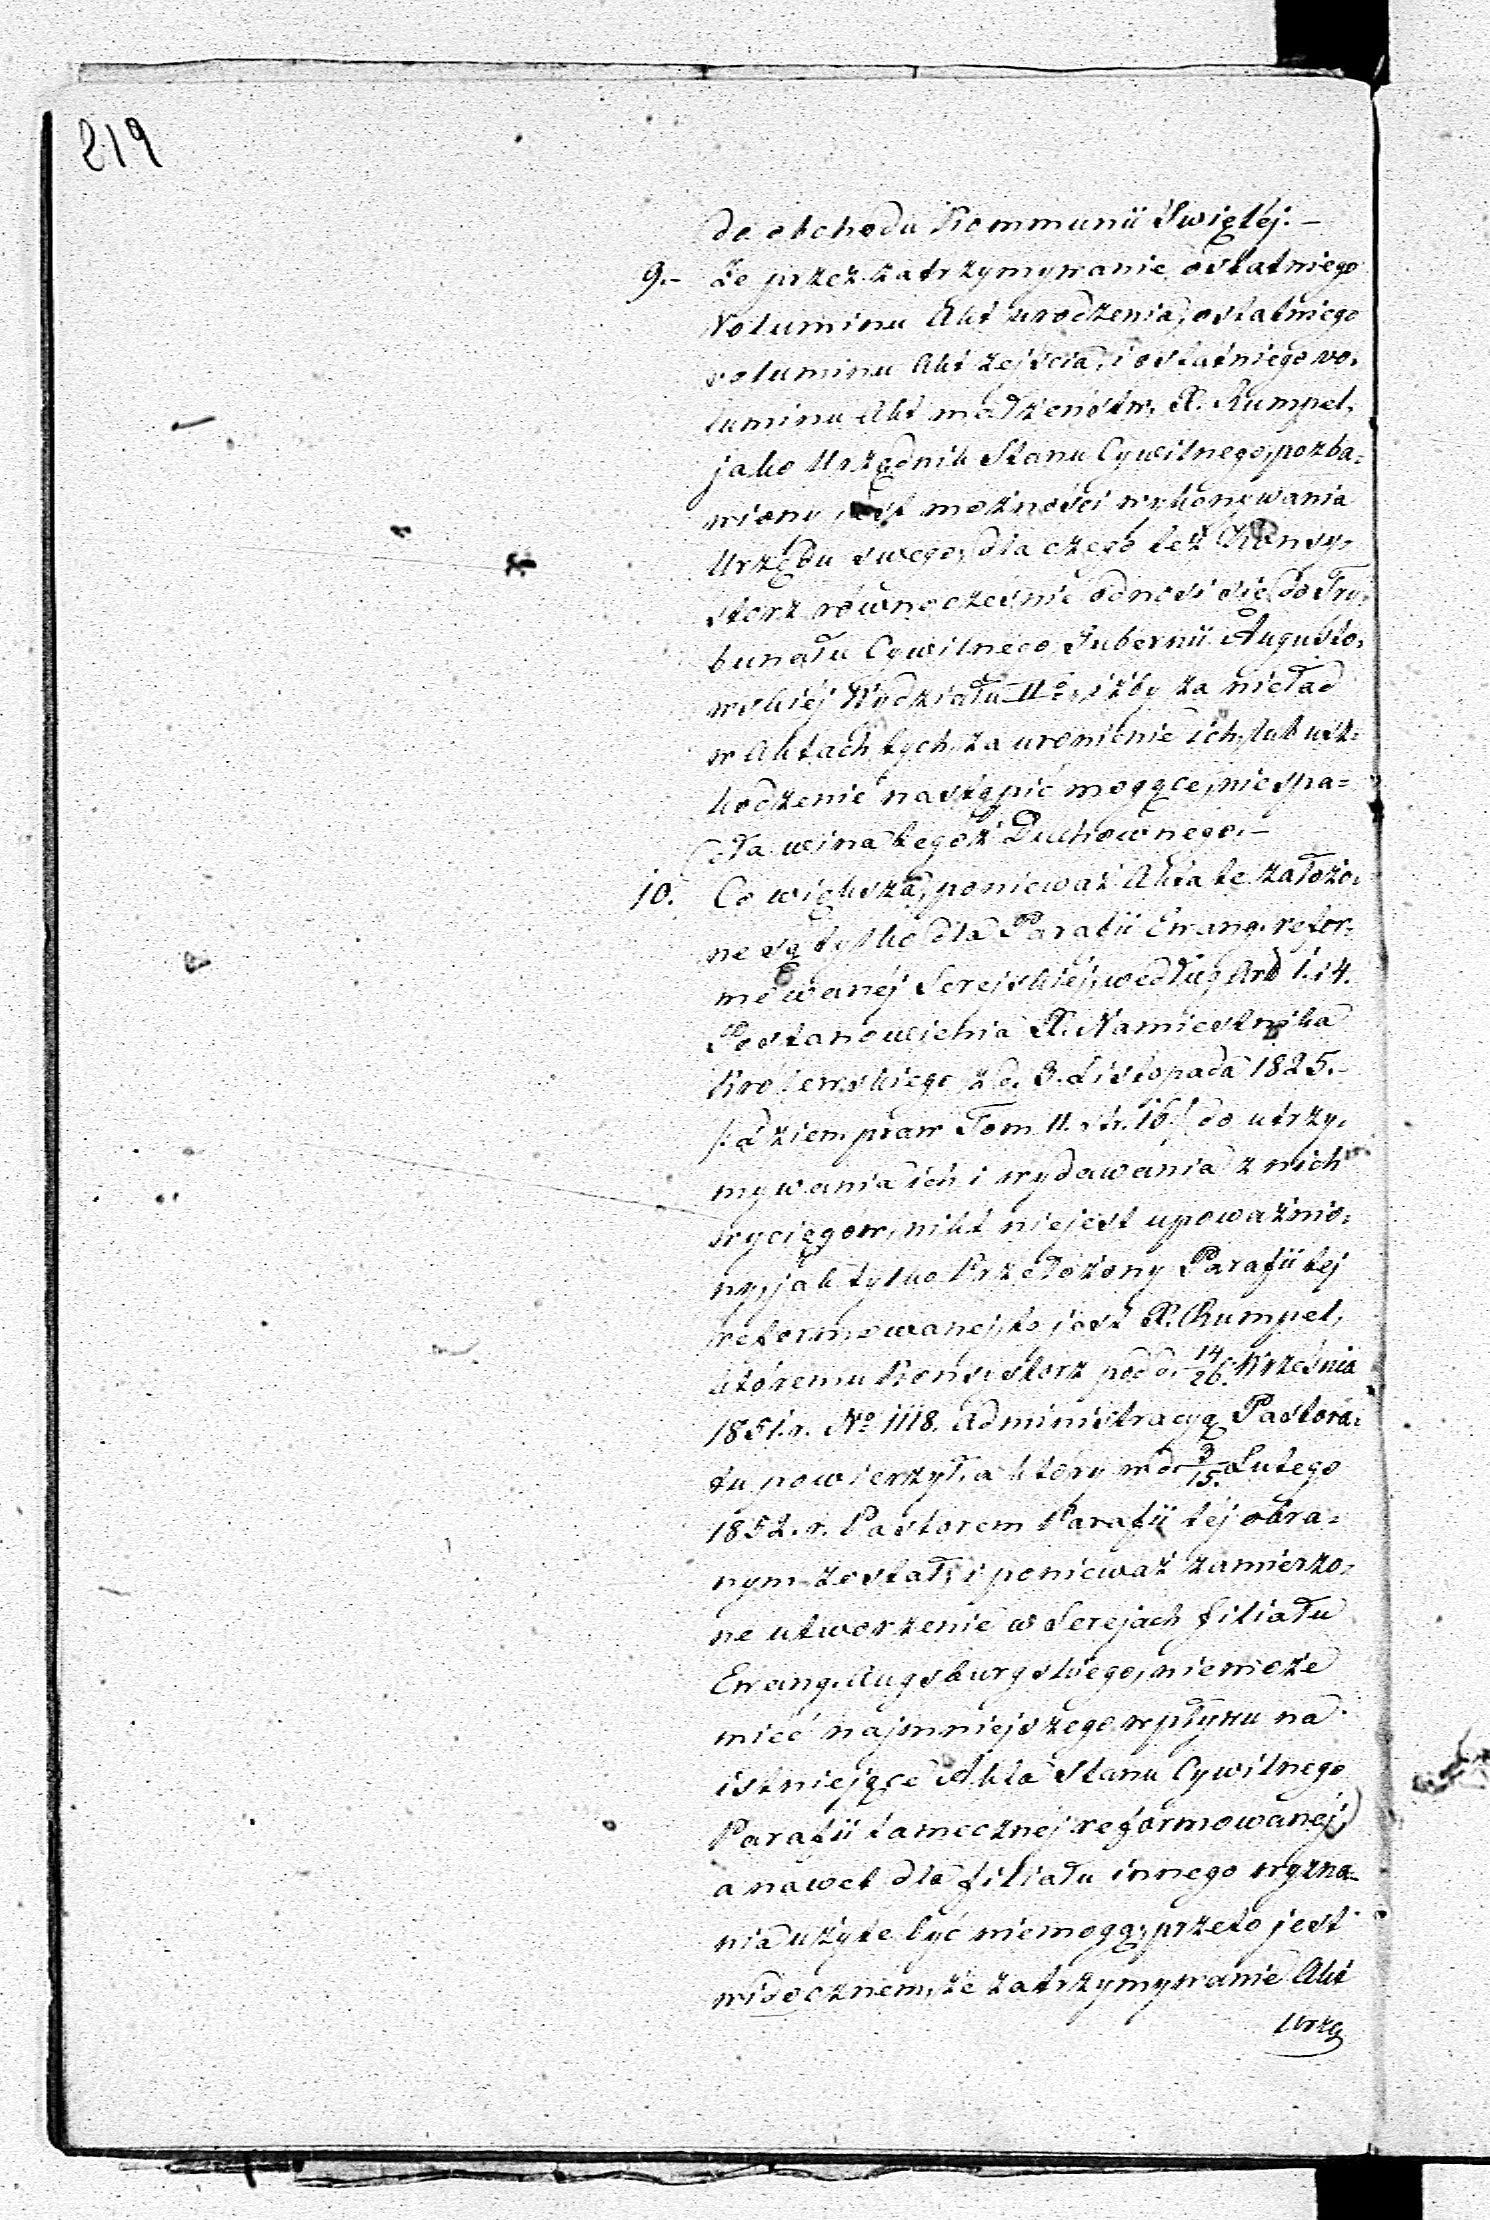 219
do obchodu Kommunii Swiętéj.-
9.- Że przez zatrzymywanie ostatniego
Voluminu Akt urodzenia, ostatniego
voluminu Akt zejścia, i ostatniego vo=
luminu Akt małżeństw, X. Rumpel,
jako Urzędnik Stanu Cywilnego, pozba=
wiony jest możności wykonywania
Urzędu swego, dla czego też Konsy=
storz równocześnie odnosi się do Try=
bunału Cywilnego Gubernii Augusto=
wskiéj Wydziału IIo, iżby za nieład
w Aktach tych, za uronienie ich, lub usz=
kodzenie nastąpić mogące, nie spa=
dła wina tegoż Duchownego.-
10. Co większa, ponieważ Akta te założo=
ne są tylko dla Parafii Ewang. refor=
mowanéj Serejskiéj, według Art 1. i 4.
Postanowienia X. Namiestnika
Królewskiego z d. 3. Listopada 1825.-
/:dzien. praw Tom 11. str. 16:/ do utrzy=
mywania ich i wydawania z nich
wyciągów, nikt niejest upoważnio=
ny, jak tylko Przełożony Parafii tej
reformowanej, to jest X. Rumpel,
któremu Konsystorz pod d. 14/26. Września
1851. r. No 1118. Administracyą Pastora=
tu powierzył, a który w d. 3/15. Lutego
1852. r. Pastorem Parafii téj obra=
nym został, i ponieważ zamierzo=
ne utworzenie w Serejach filiału
Ewang. Augsburgskiego, niemoże
mieć najmniejszego wpływu na
istniejące Akta Stanu Cywilnego
Parafii tamecznéj reformowanéj,
a nawet dla filiału innego wyzna=
nia użyte być niemogą, przeto jest
widocznem, że zatrzymywanie Akt
Urzę